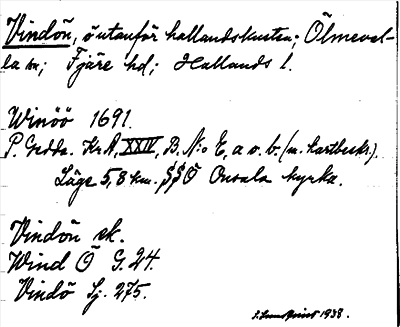 Vindön, ö utanför hallandskusten; Ölmeval-
la sn; Fjäre hd; Hallands l.
Winöö 1691.
P. Gedda. KrA, XXIV, B. N:o 6, a o. b. (m. kartbeskr.).
Läge 5,8 km. SSÖ Onsala kyrka.
Vindön ek.
Wind Ö G. 24.
Vindö Sj. 275.
Lundqvist 1938.